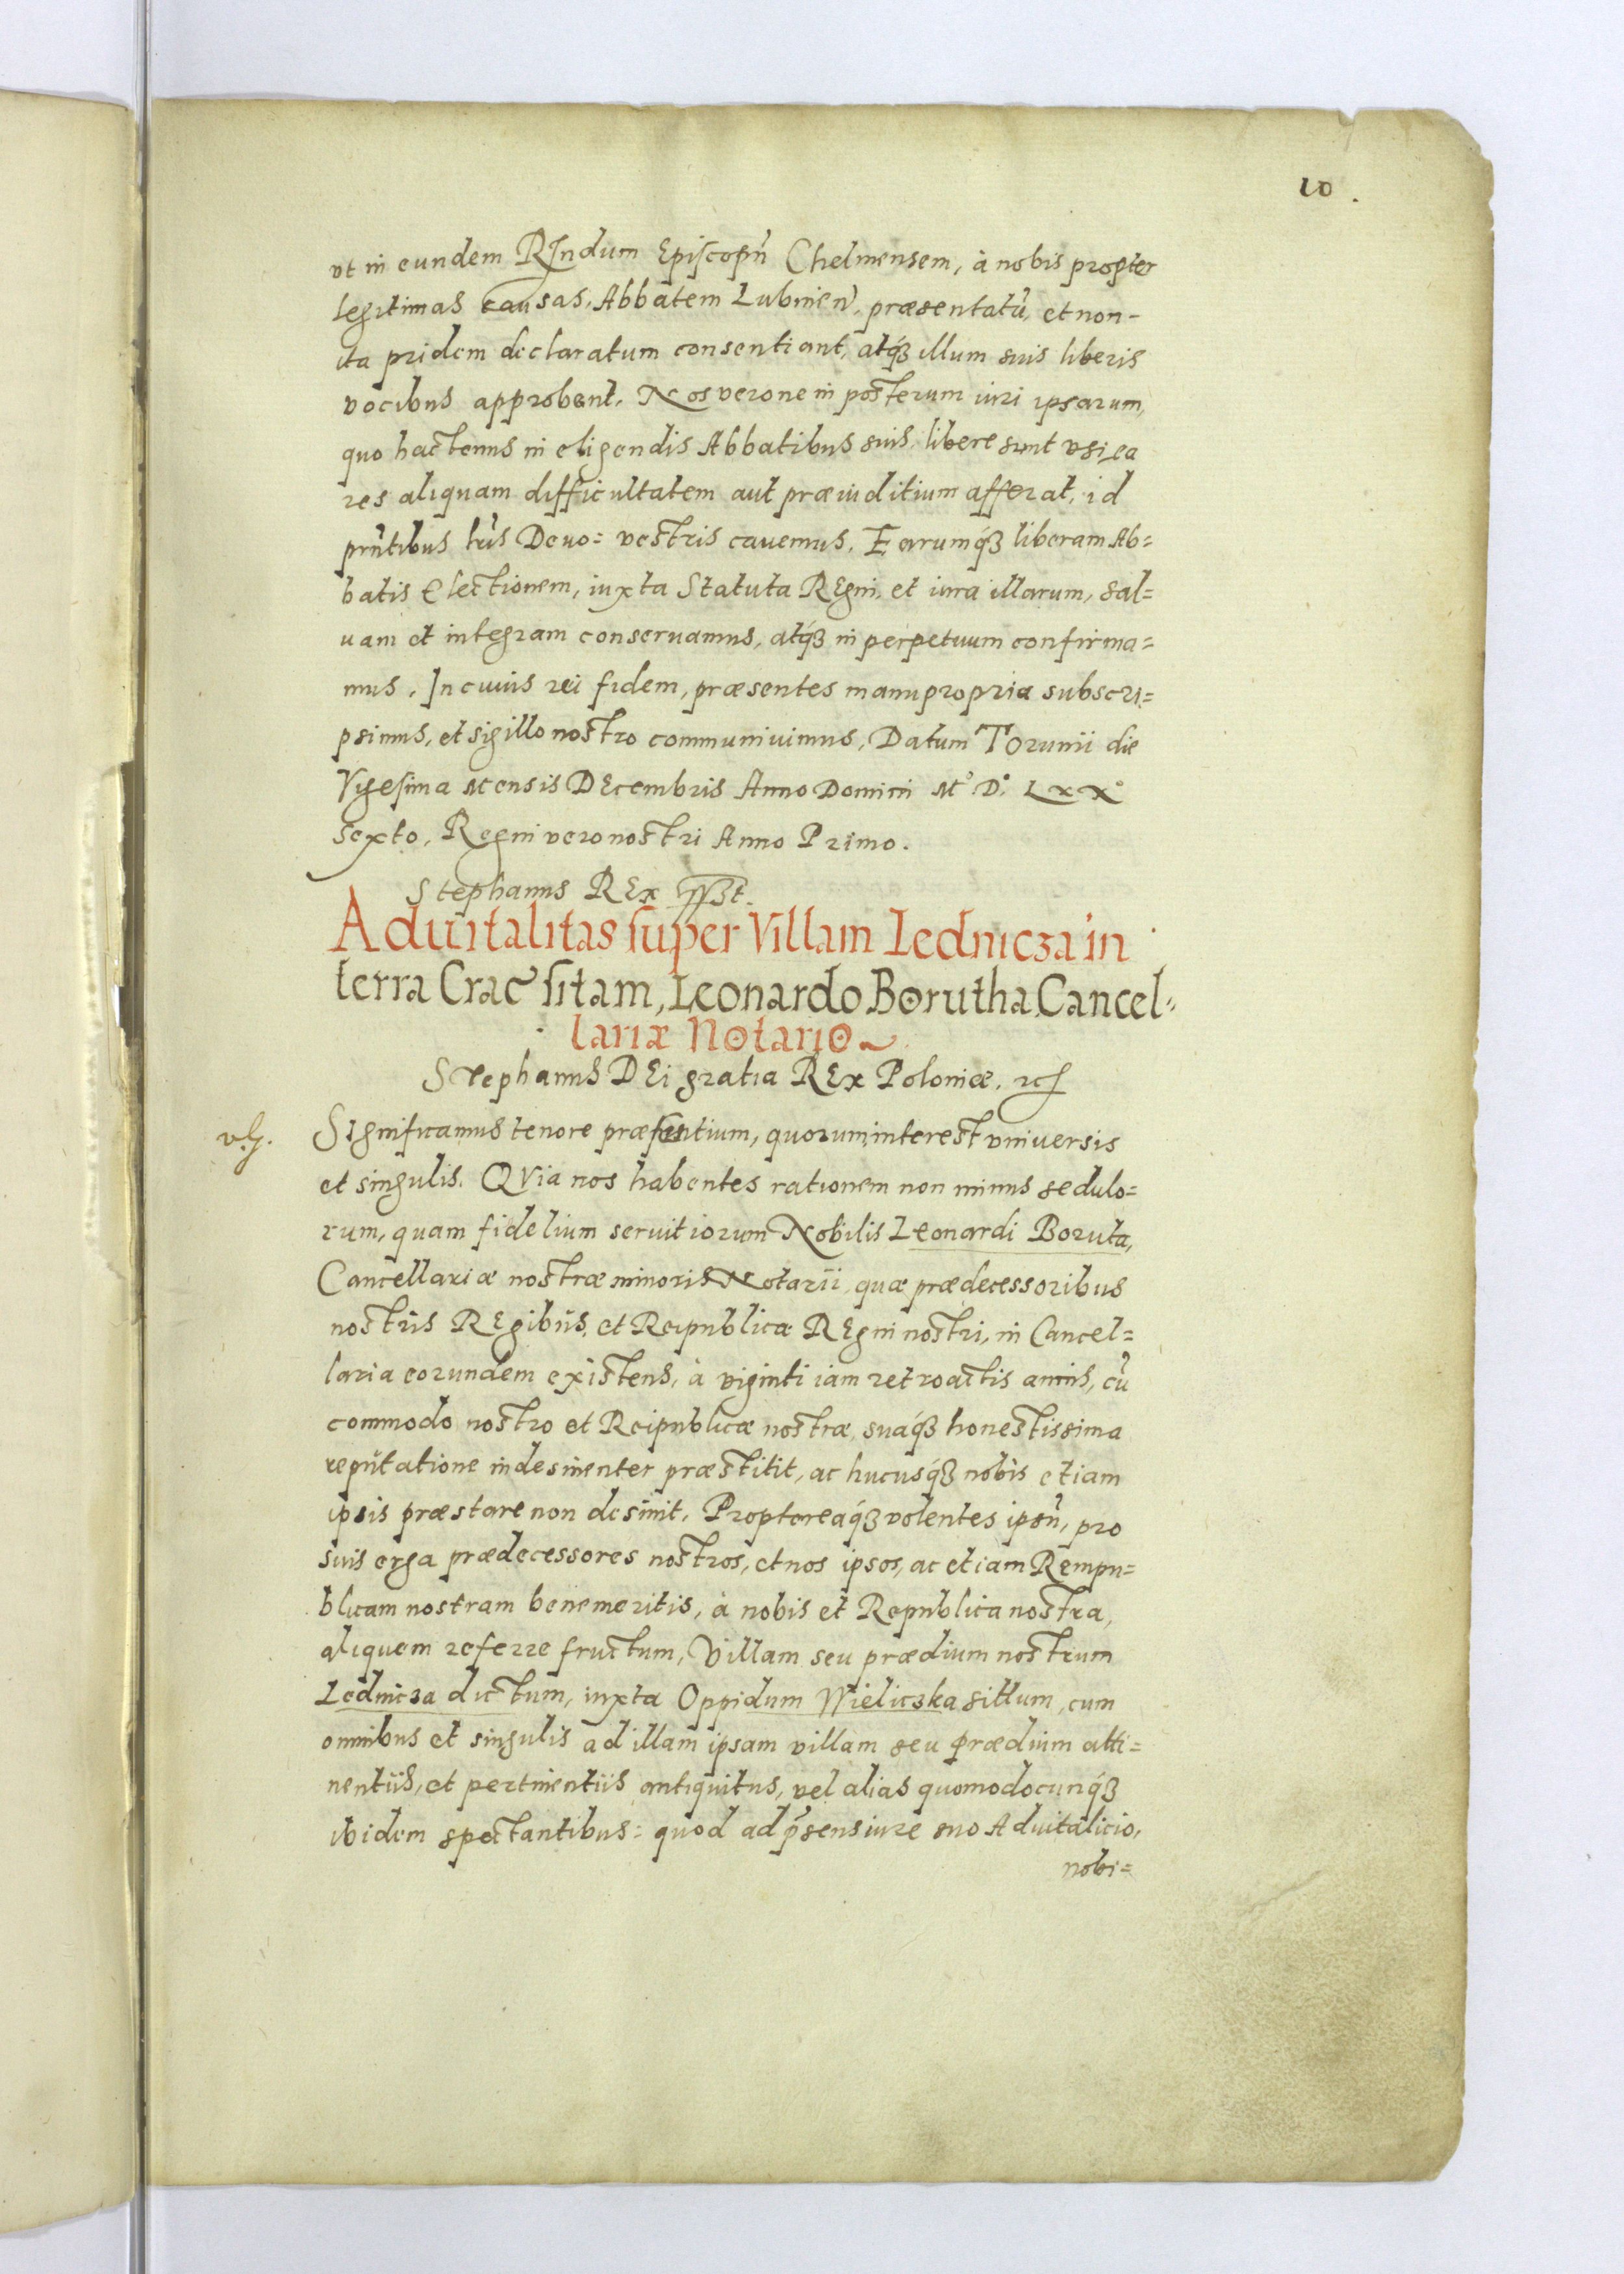 10.
vt in eundem RIndum Episcopũ Chelmensem, à nobis propter
legitimas causas, Abbatem Lubineñ, præsentatũ, et non-
ita pridem declaratum consentiant, atq́ꝫ illum suis liberis
vocibus approbent. Nos vero ne in posterum iuri ipsarum,
quo hactenus in eligendis Abbatibus suis, libere sunt vsi, ea
res aliquam difficultatem aut præiuditium afferat, id
pñtibus lr̃is Deuo= vestris cauemus. Earumq́ꝫ liberam Ab=
batis Electionem, iuxta Statuta REgni, et iura illarum, sal=
uam et integram conseruamus, atq́ꝫ in perpetuum confirma=
mus. In cuius rei fidem, præsentes manu propria subscri=
psimus, et sigillo nostro communiuimus, Datum Torunii die
Vigesima Mensis DEcembris Anno Domini M° D° LXX°
sexto, Regni vero nostri Anno Primo.
Stephanus REx sst.
Aduitalitas super Villam Lednicza in
terra Crac̃ sitam, Leonardo Borutha Cancel=
lariæ Notario
Stephanus DEi gratia REx Poloniæ. etc
Significamus tenore præsentium, quorum interest vniuersis
et singulis. QVia nos habentes rationem non minus sedulo=
rum, quam fidelium seruitiorum Nobilis Leonardi Boruta,
Cancellariæ nostræ minoris Notarii, quæ prædecessoribus
nostris REgibus, et Reipublicæ REgni nostri, in Cancel=
laria eorundem existens, à viginti iam retroactis annis, cũ
commodo nostro et Reipublicæ nostræ, suaq́ꝫ honestissima
reputatione indesinenter præstitit, ac hucusq́ꝫ nobis etiam
ipsis præstare non desinit. Proptereaq́ꝫ volentes ipsũ, pro
suis erga prædecessores nostros, et nos ipsos, ac etiam Rempu=
blicam nostram benemeritis, à nobis et Republica nostra,
aliquem referre fructum, Villam seu prædium nostrum
Lednicza dictum, iuxta Oppidum Wieliczka sittum, cum
omnibus et singulis ad illam ipsam villam seu prædium atti=
nentiis, et pertinentiis antiquitus, vel alias quomodocunq́ꝫ
ibidem spectantibus: quod ad p̃sens iure suo Aduitalicio,
nobi=